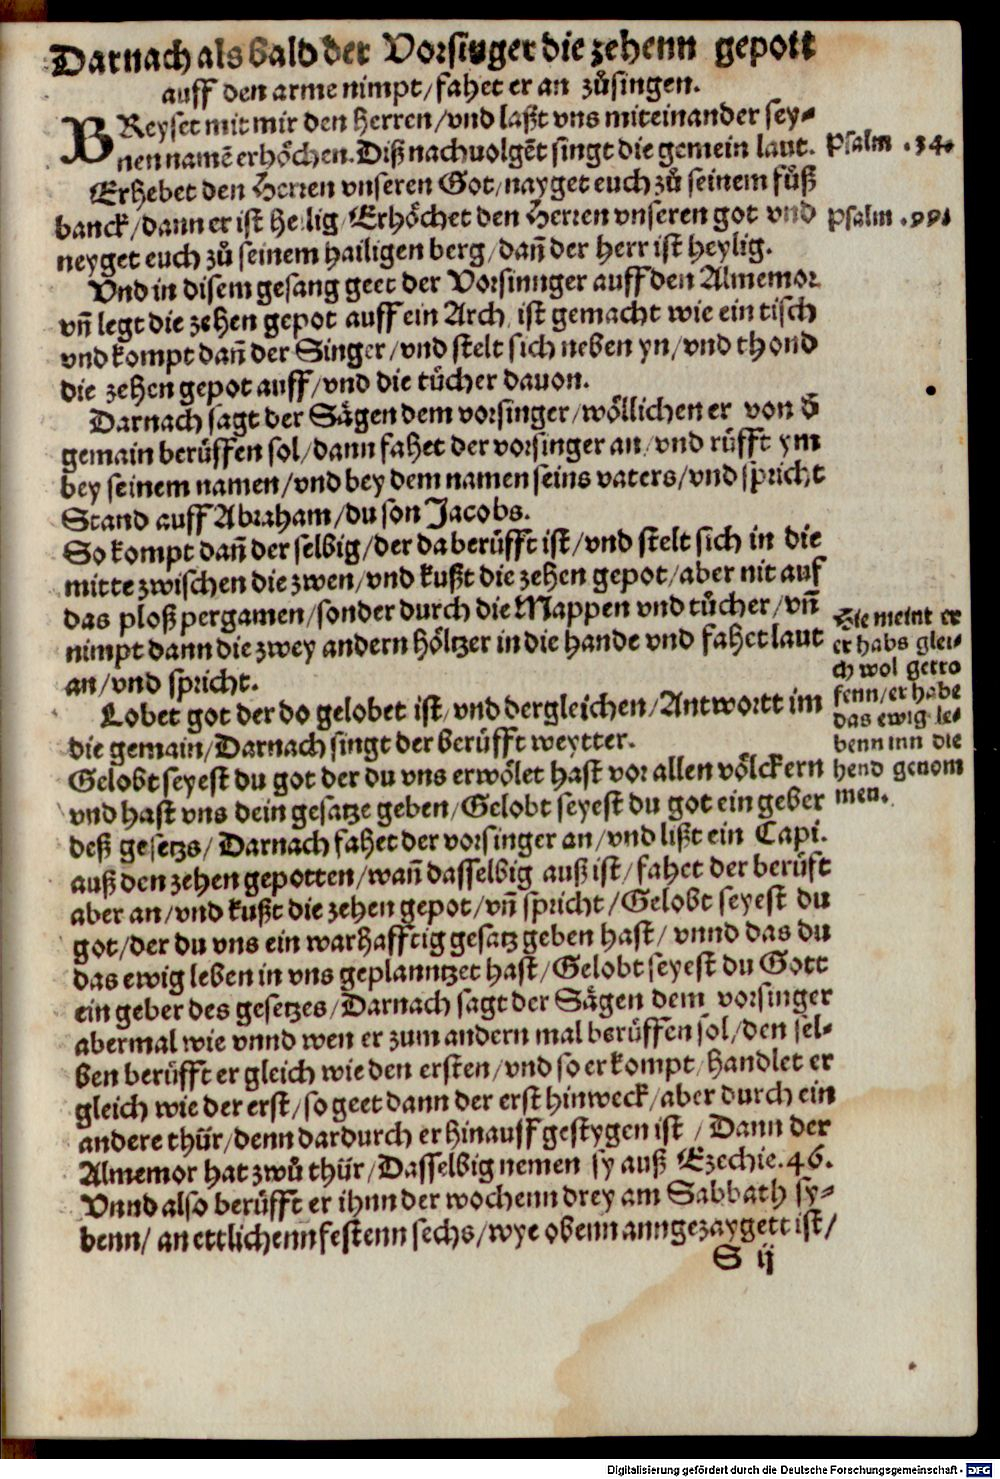 Darnach als bald der Vorsinger die zehenn gepott
auff den arme nimpt/fahet er an zůsingen.
BReyset mit mir den Herren/vnd laßt vns miteinander sey-
nen namẽ erhöchen. Diß nachuolgẽt singt die gemein laut.
Psalm .34.
Erhebet den Herren vnseren Got/nayget euch zů seinem fůß
banck/dann er ist heilig/Erhöchet den Herren vnseren got vnd
Psalm .99.
neyget euch zů seinem hailigen berg/dañ der herr ist heylig.
Vnd in disem gesang geet der Vorsinnger auff den Almemor
vñ legt die zehen gepot auff ein Arch, ist gemacht wie ein tisch
vnd kompt dañ der Singer/vnd stelt sich neben yn/vnd thond
die zehen gepot auff/vnd die tücher dauon.
Darnach sagt der Sägen dem vorsinger/wöllichen er von d̃
gemain berüffen sol/dann fahet der vorsinger an/vnd rüfft ym
bey seinem namen/vnd bey dem namen seins vaters/vnd spricht
Stand auff Abraham/du son Jacobs.
So kompt dañ der selbig/der da berüfft ist/vnd stelt sich in die
mitte zwischen die zwen/vnd kußt die zehen gepot/aber nit auf
das ploß pergamen/sonder durch die Mappen vnd tücher/vñ
nimpt dann die zwey andern höltzer in die hande vnd fahet laut
an/vnd spricht.
Lobet got der do gelobet ist/vnd dergleichen/Antwortt im
die gemain/Darnach singt der berüfft weytter.
Gelobt seyest du got der du vns erwölet hast vor allen völckern
vnd hast vns dein gesatze geben/Gelobt seyest du got ein geber
deß gesetzs/Darnach fahet der vorsinger an/vnd lißt ein Capi.
auß den zehen gepotten/wañ dasselbig auß ist/fahet der berüft
aber an/vnd kußt die zehen gepot/vñ spricht/Gelobt seyest du
got/der du vns ein warhafftig gesatz geben hast/vnnd das du
das ewig leben in vns geplanntzet hast/Gelobt seyest du Gott
ein geber des gesetzes/Darnach sagt der Sägen dem vorsinger
abermal wie vnnd wen er zum andern mal berüffen sol/den sel-
ben berüfft er gleich wie den ersten/vnd so er kompt/handlet er
gleich wie der erst/so geet dann der erst hinweck/aber durch ein
andere thür/denn dardurch er hinauff gestygen ist/Dann der
Almemor hat zwů thür/Dasselbig nemen sy auß Ezechie.46.
Vnnd also berüfft er ihnn der wochenn drey am Sabbath sy-
benn/an ettlichenn festenn sechs/wye obenn anngezaygett ist/
Hie meint er
er habs glei-
ch wol getro
fenn/er habe
das ewig le-
benn inn die
hend genom
men.
S ij
Digitalisierung gefördert durch die Deutsche Forschungsgemeinschaft - DFG